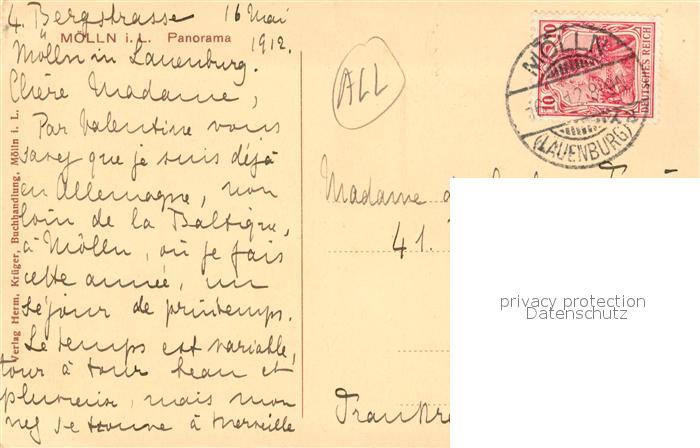 4. Bergstrasse 16 Mai
MÖLLN i. L. Panorama
1912.
Mölln in Lauenburg.
Chère Madame,
Par Valentine vous
savez que je suis déjà
en Allemagne, non
loin de la Baltique,
à Mölln, où je fais
cette année, un
séjour de printemps.
Le temps est variable,
tour à tour beau et
pluvieux, mais mon
nez se trouve à merveille
Verlag Herm. Krüger, Buchhandlung, Mölln i. L.
ALL
10 10
DEUTSCHES REICH
MÖLLN
(LAUENBURG)
Madame
41.
Frankre
privacy protection
Datenschutz